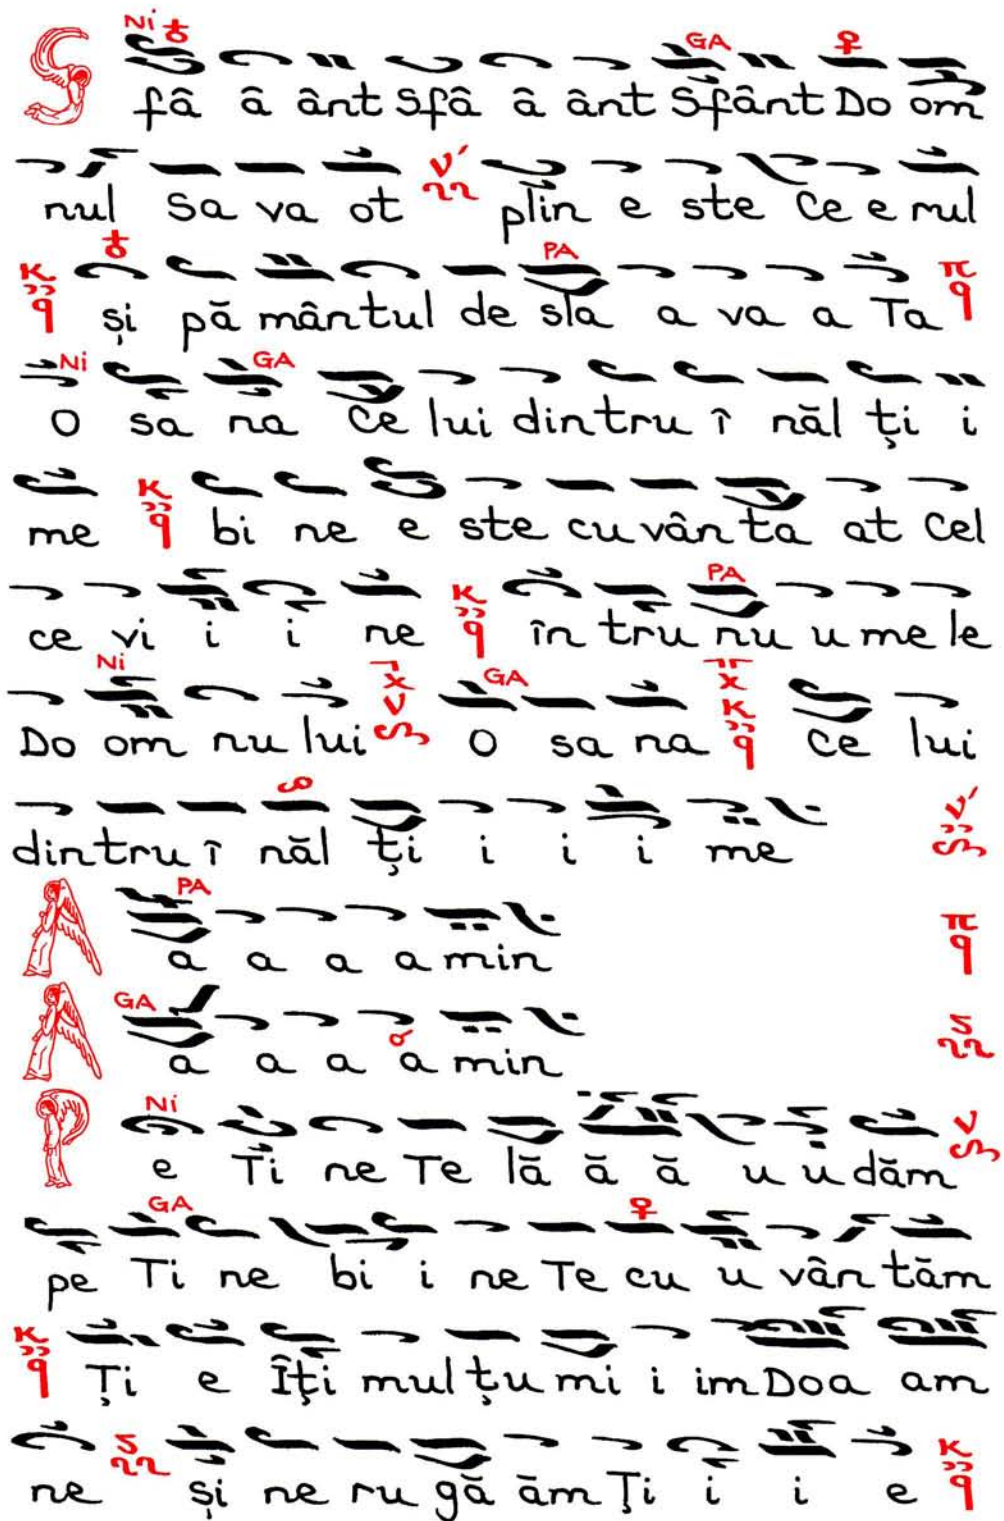 Ni GA
Sfâ â ânt Sfâ â ânt Sfânt Do om
nul Sa va ot plin e ste Ce e rul
PA
și pă mântul de sla a va a Ta
Ni GA
O sa na Ce lui dintru î năl ți i
me bi ne e ste cu vân ta at Cel
PA
ce vi i i ne în tru nu u me le
Ni GA
Do om nu lui O sa na Ce lui
dintru î năl ți i i i me
PA
A a a a a min
GA
A a a a a min
Ni
P e Ti ne Te lă ă ă u u dăm
GA
pe Ti ne bi i ne Te cu u vân tăm
Ți e Îți mul țu mi i im Doa am
ne și ne ru gă ăm Ți i i e